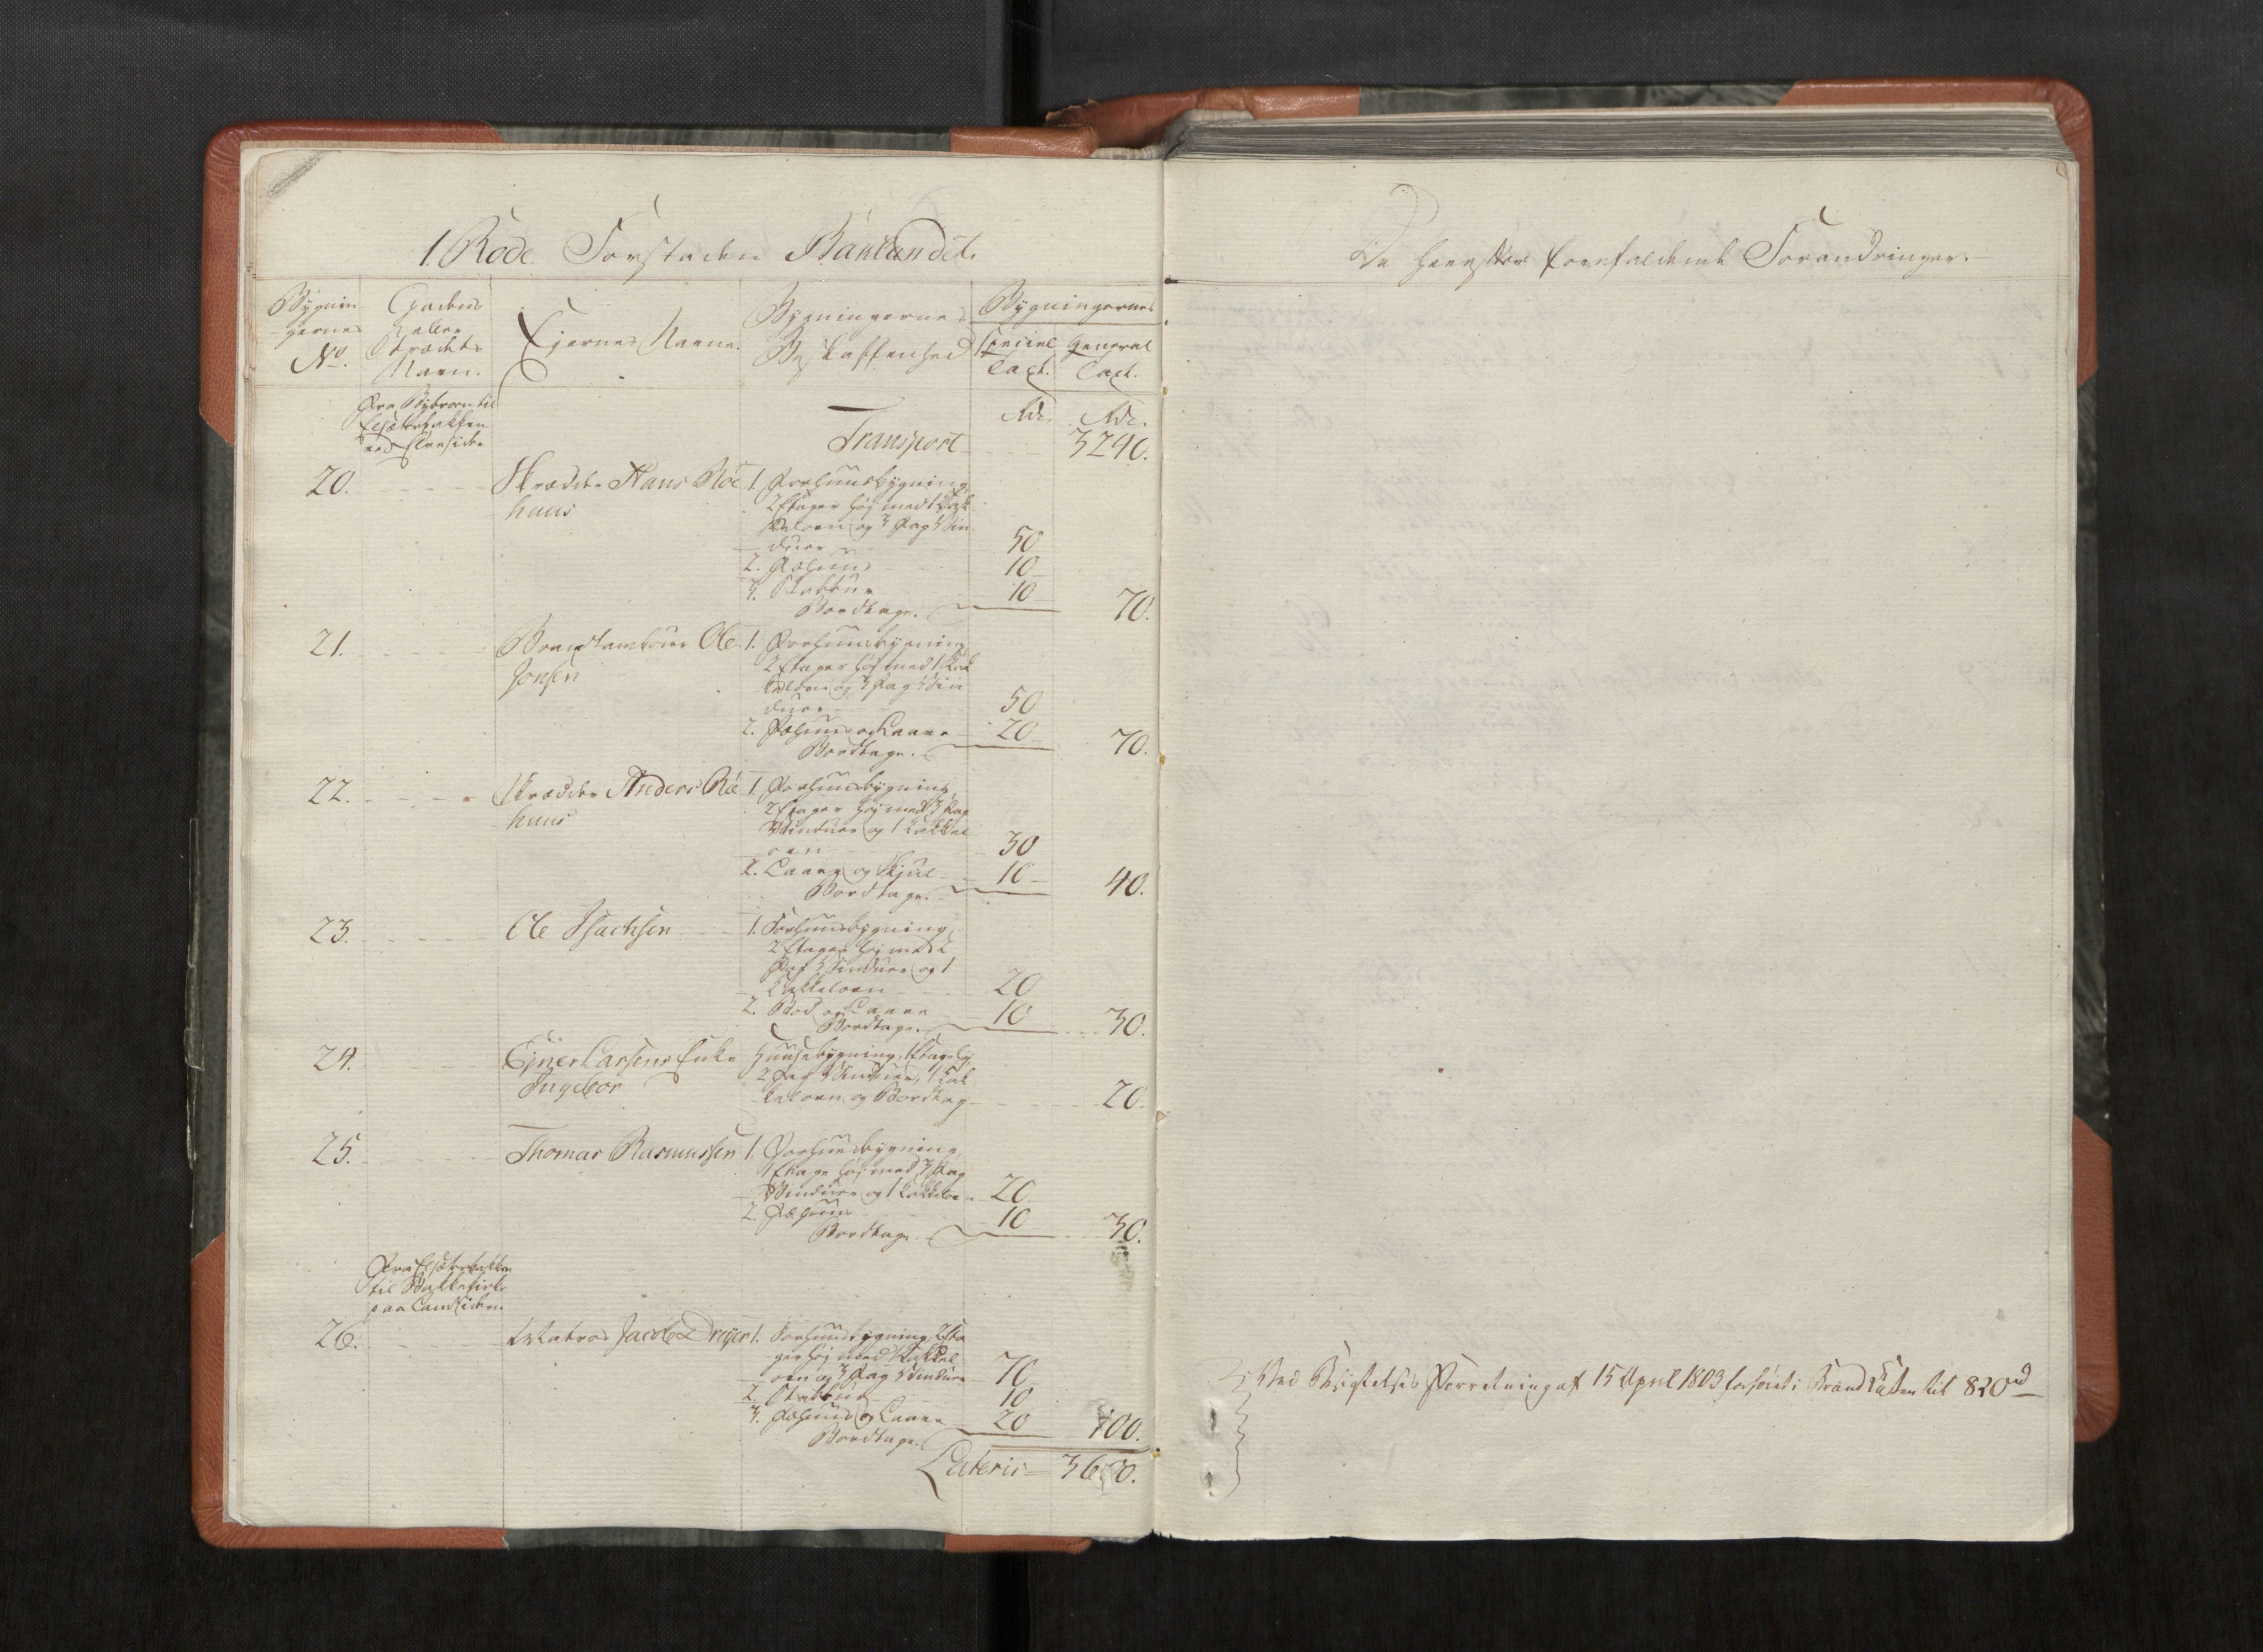 1. Rode. Forstaden Baklandet.
Bygnin-
gernes
No.
Gadens
eller
Strædets
Navn.
Ejernes Navne.
Bygningernes
Beskaffenhed
Bygningernes
Special
Taxt.
General
Taxt.
Rdr. Rdr.
Fra Bybroen til
ved Elvesiden
Transport 3290.
20. Skrædder Hans Roe
huus
1. Forhuusbygning
2 Etager høj med 1 Kak
keloen og 3 Fag Vin
duer 50
2. Fæhuus 10
3. Stabbur 10
Bordtage. 70.
21. Brandtambour Ole
Jonsen
1. Forhuusbygning
2 Etager høj med 1 Kak
keloen og 3 Fag Vin
duer 50
2. Fæhuus og Laave 20
Bordtage. 70.
22. Skrædder Anders Roe
huus
1. Forhuusbygning,
2 Etager høj med 3 Fag
Vinduer og 1 Kakkel
oen 30
2. Laave og Skjul 10
Bordtage. 40.
23. Ole Isachsen
1. Forhuusbygning,
2 Etager høj med 2
Fag Vinduer og 1
Kakkeloen 20
2. Bod og Laave 10
Bordtage. 30.
24. Ejner Larsens Enke
Ingebor
Huusebygning, 1 Etage høj
2 Fag Vinduer, 1 Kak
keloen og Bordtag 20.
25. Thomas Rasmussen
1. Forhuusbygning,
1 Etage høj med 3 Fag
Vinduer og 1 Kakkeloen 20
2. Fæhuus 10
Bordtage 30.
til Bakkefirke
paa Landsiden.
26. Matros Jacob Dreyer
1. Forhuusbygning, 2 Eta
ger høj med 1 Kakkel
oen og 3 Fag Vinduer 70
2. Stabbur 10
3. Fæhuus og Laave 20
Bordtage. 100.
Lateris 3650.
De herefter forefaldende Forandringer.
Ved Besigtelses Forretning af 15 April 1803 forhøiet i Brand Taxten til 820 rd